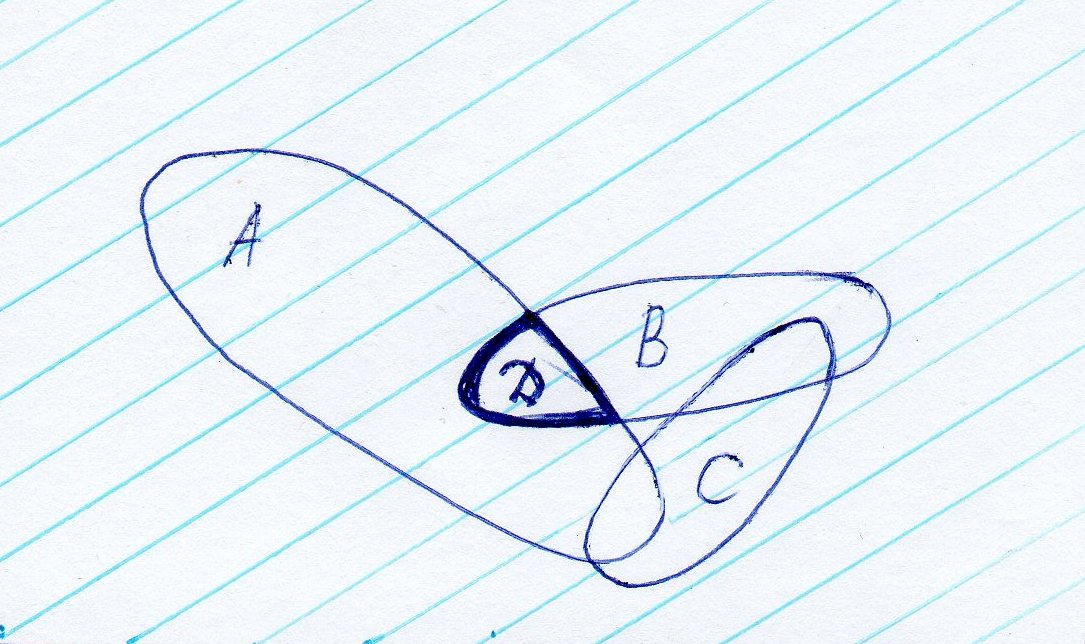 A
B
D
C